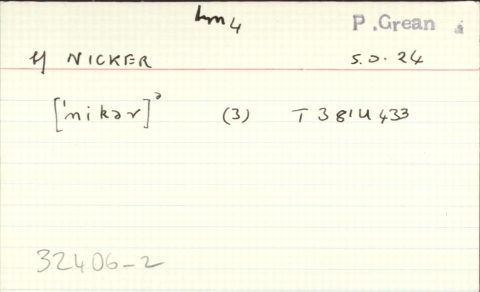 P.Grean
y NICKER S.D. 24
['nikər]ᵊ (3) T 3814433
32406-2